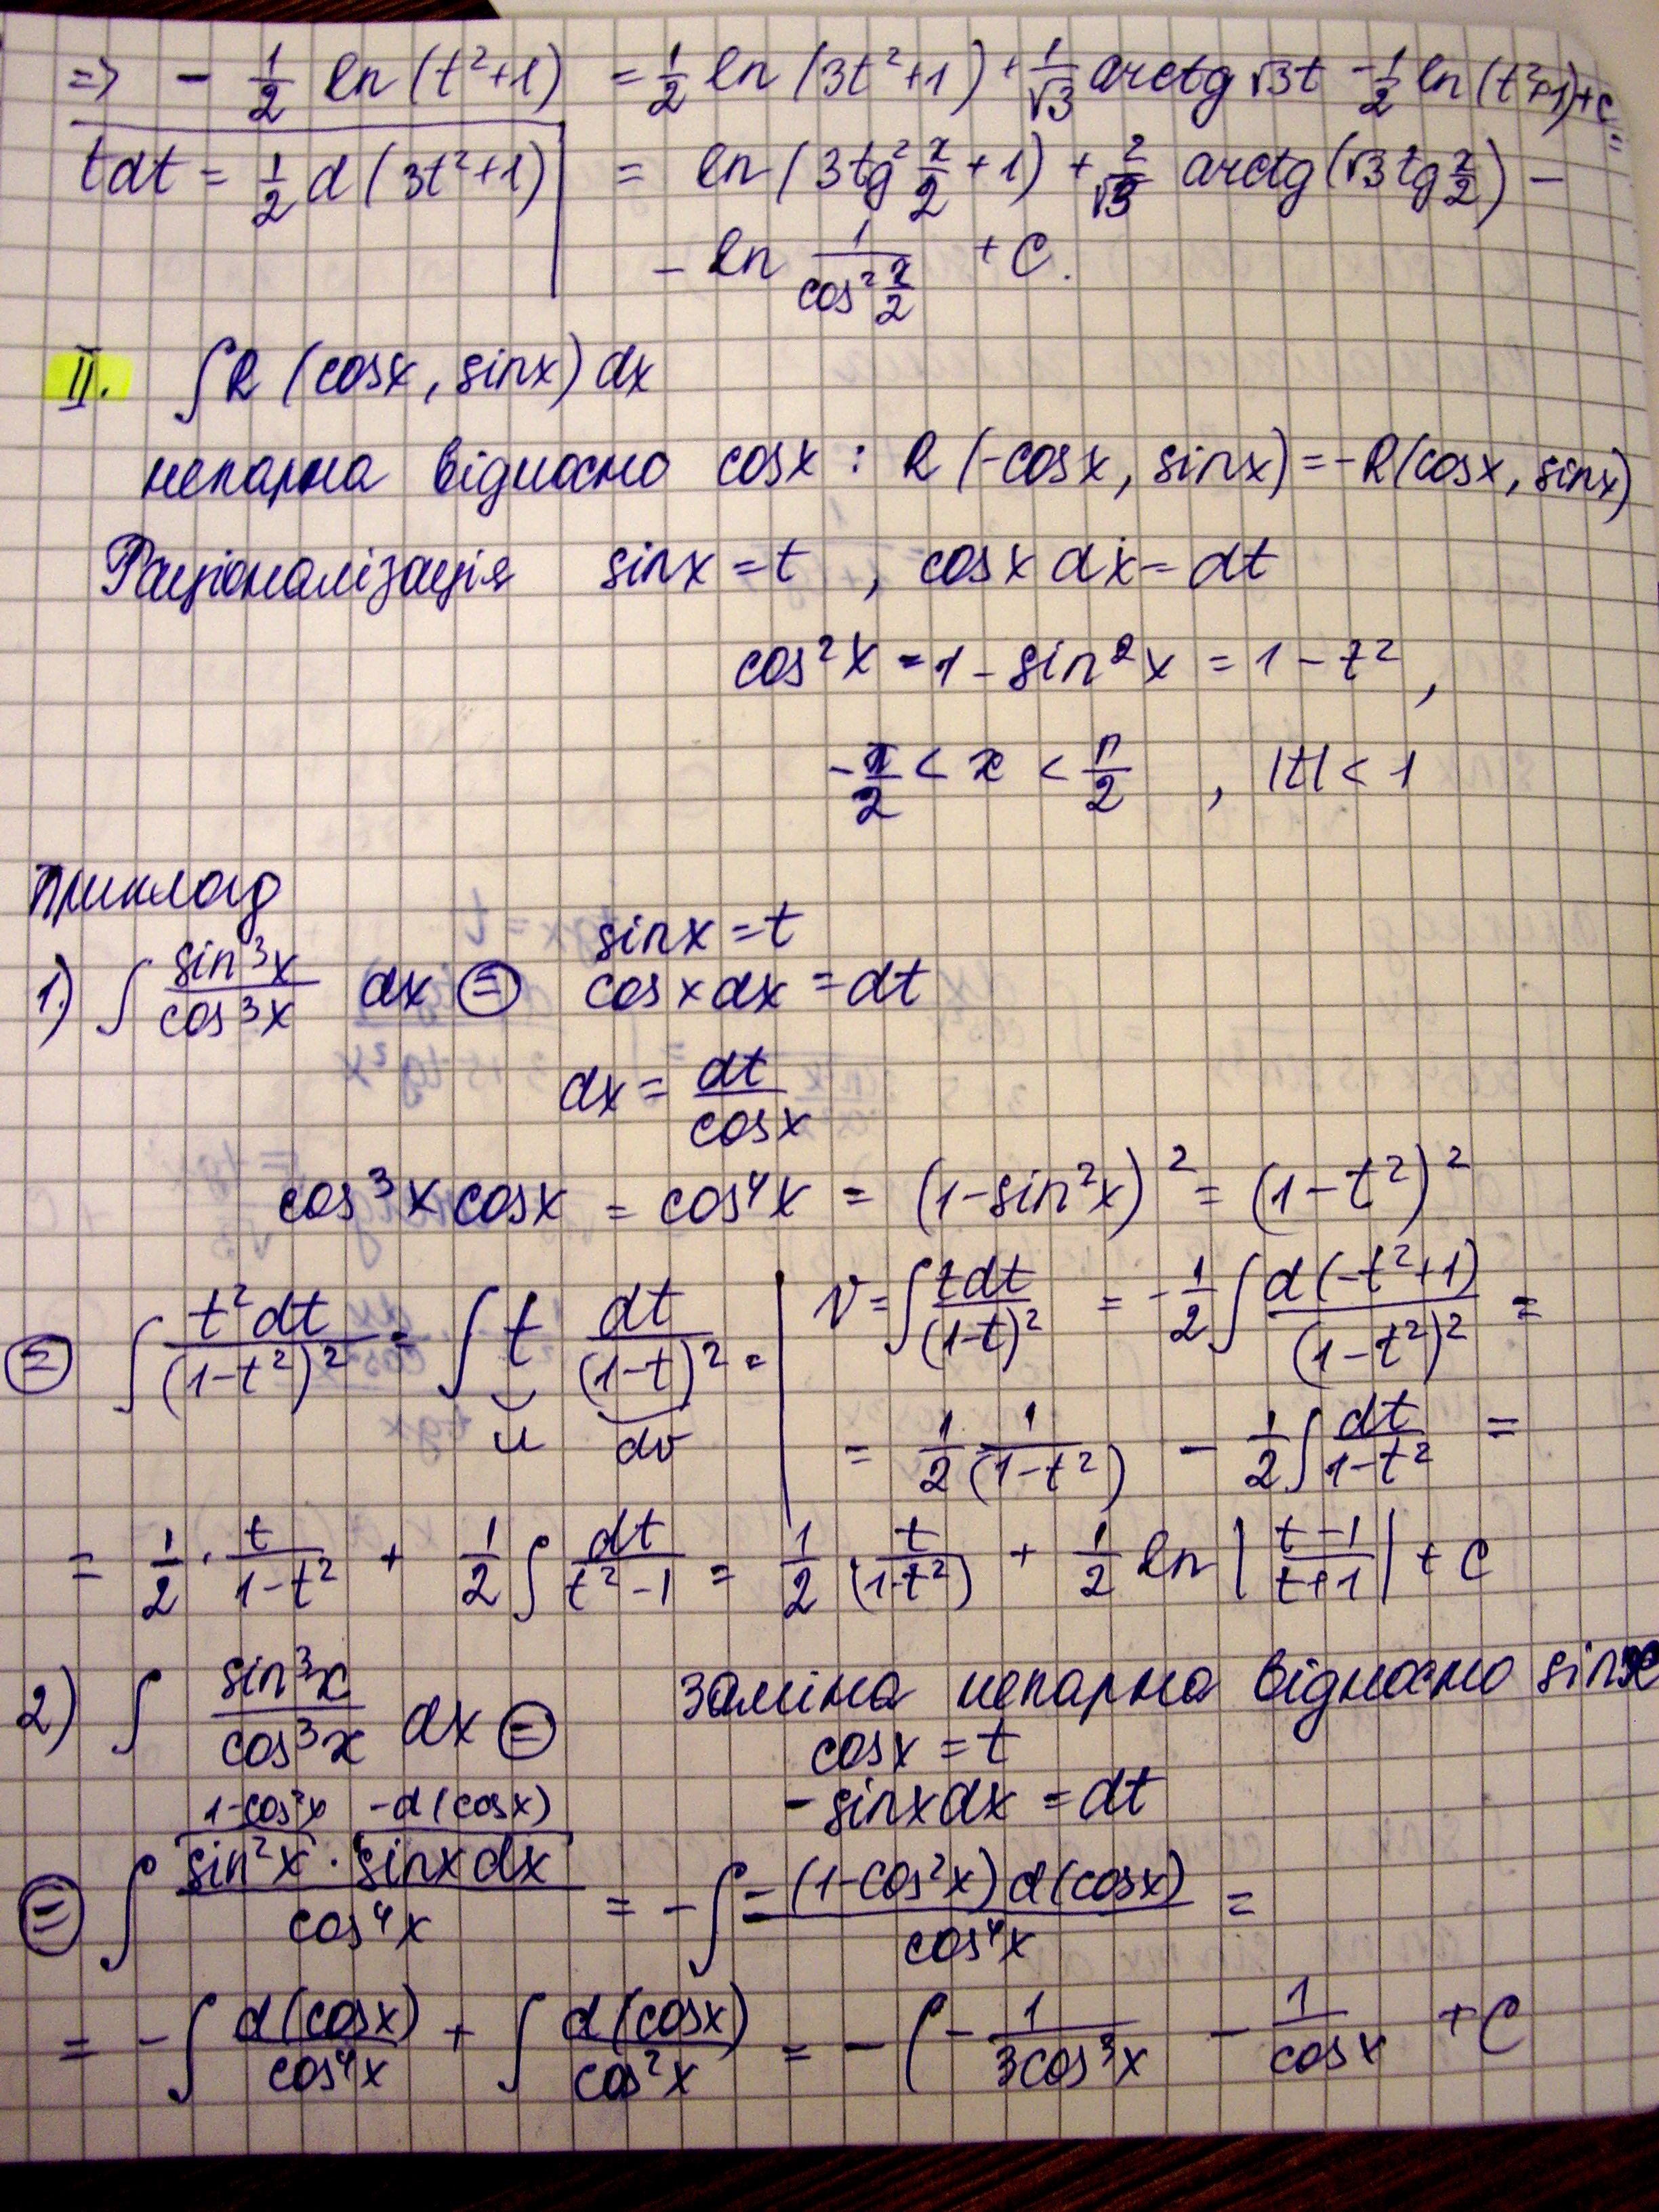 => - 1/2 ln(t²+1) = 1/2 ln(3t²+1) + 1/√3 arctg √3t - 1/2 ln(t²+1)+c =
tdt = 1/2 d(3t²+1) = ln(3tg² x/2 + 1) + 2/√3 arctg(√3 tg x/2) -
- ln 1/cos² x/2 + C.
II. ∫R (cosx, sinx) dx
непарна відносно cosx : R(-cosx, sinx) = -R(cosx, sinx)
Раціоналізація sinx = t , cosx dx = dt
cos²x = 1 - sin²x = 1 - t² ,
-π/2 < x < π/2 , |t| < 1
Приклад
sinx = t
1) ∫ sin³x/cos³x dx ⊜ cosxdx = dt
dx = dt/cosx
cos³x cosx = cos⁴x = (1-sin²x)² = (1-t²)²
⊜ ∫ t²dt/(1-t²)² = ∫ t dt/(1-t)² = | v = ∫ tdt/(1-t)² = -1/2 ∫ d(-t²+1)/(1-t²)² =
u dv = 1/2 1/(1-t²) - 1/2 ∫ dt/1-t² =
= 1/2 · t/1-t² + 1/2 ∫ dt/t²-1 = 1/2 · t/(1-t²) + 1/2 ln |t-1/t+1| + C
2) ∫ sin³x/cos³x dx ⊜ заміна непарна відносно sinx
cosx = t
1-cos²x -d(cosx) -sinxdx = dt
⊜ ∫ sin²x · sinxdx/cos⁴x = -∫ -(1-cos²x)d(cosx)/cos⁴x =
= -∫ d(cosx)/cos⁴x + ∫ d(cosx)/cos²x = -(- 1/3cos³x - 1/cosx + C